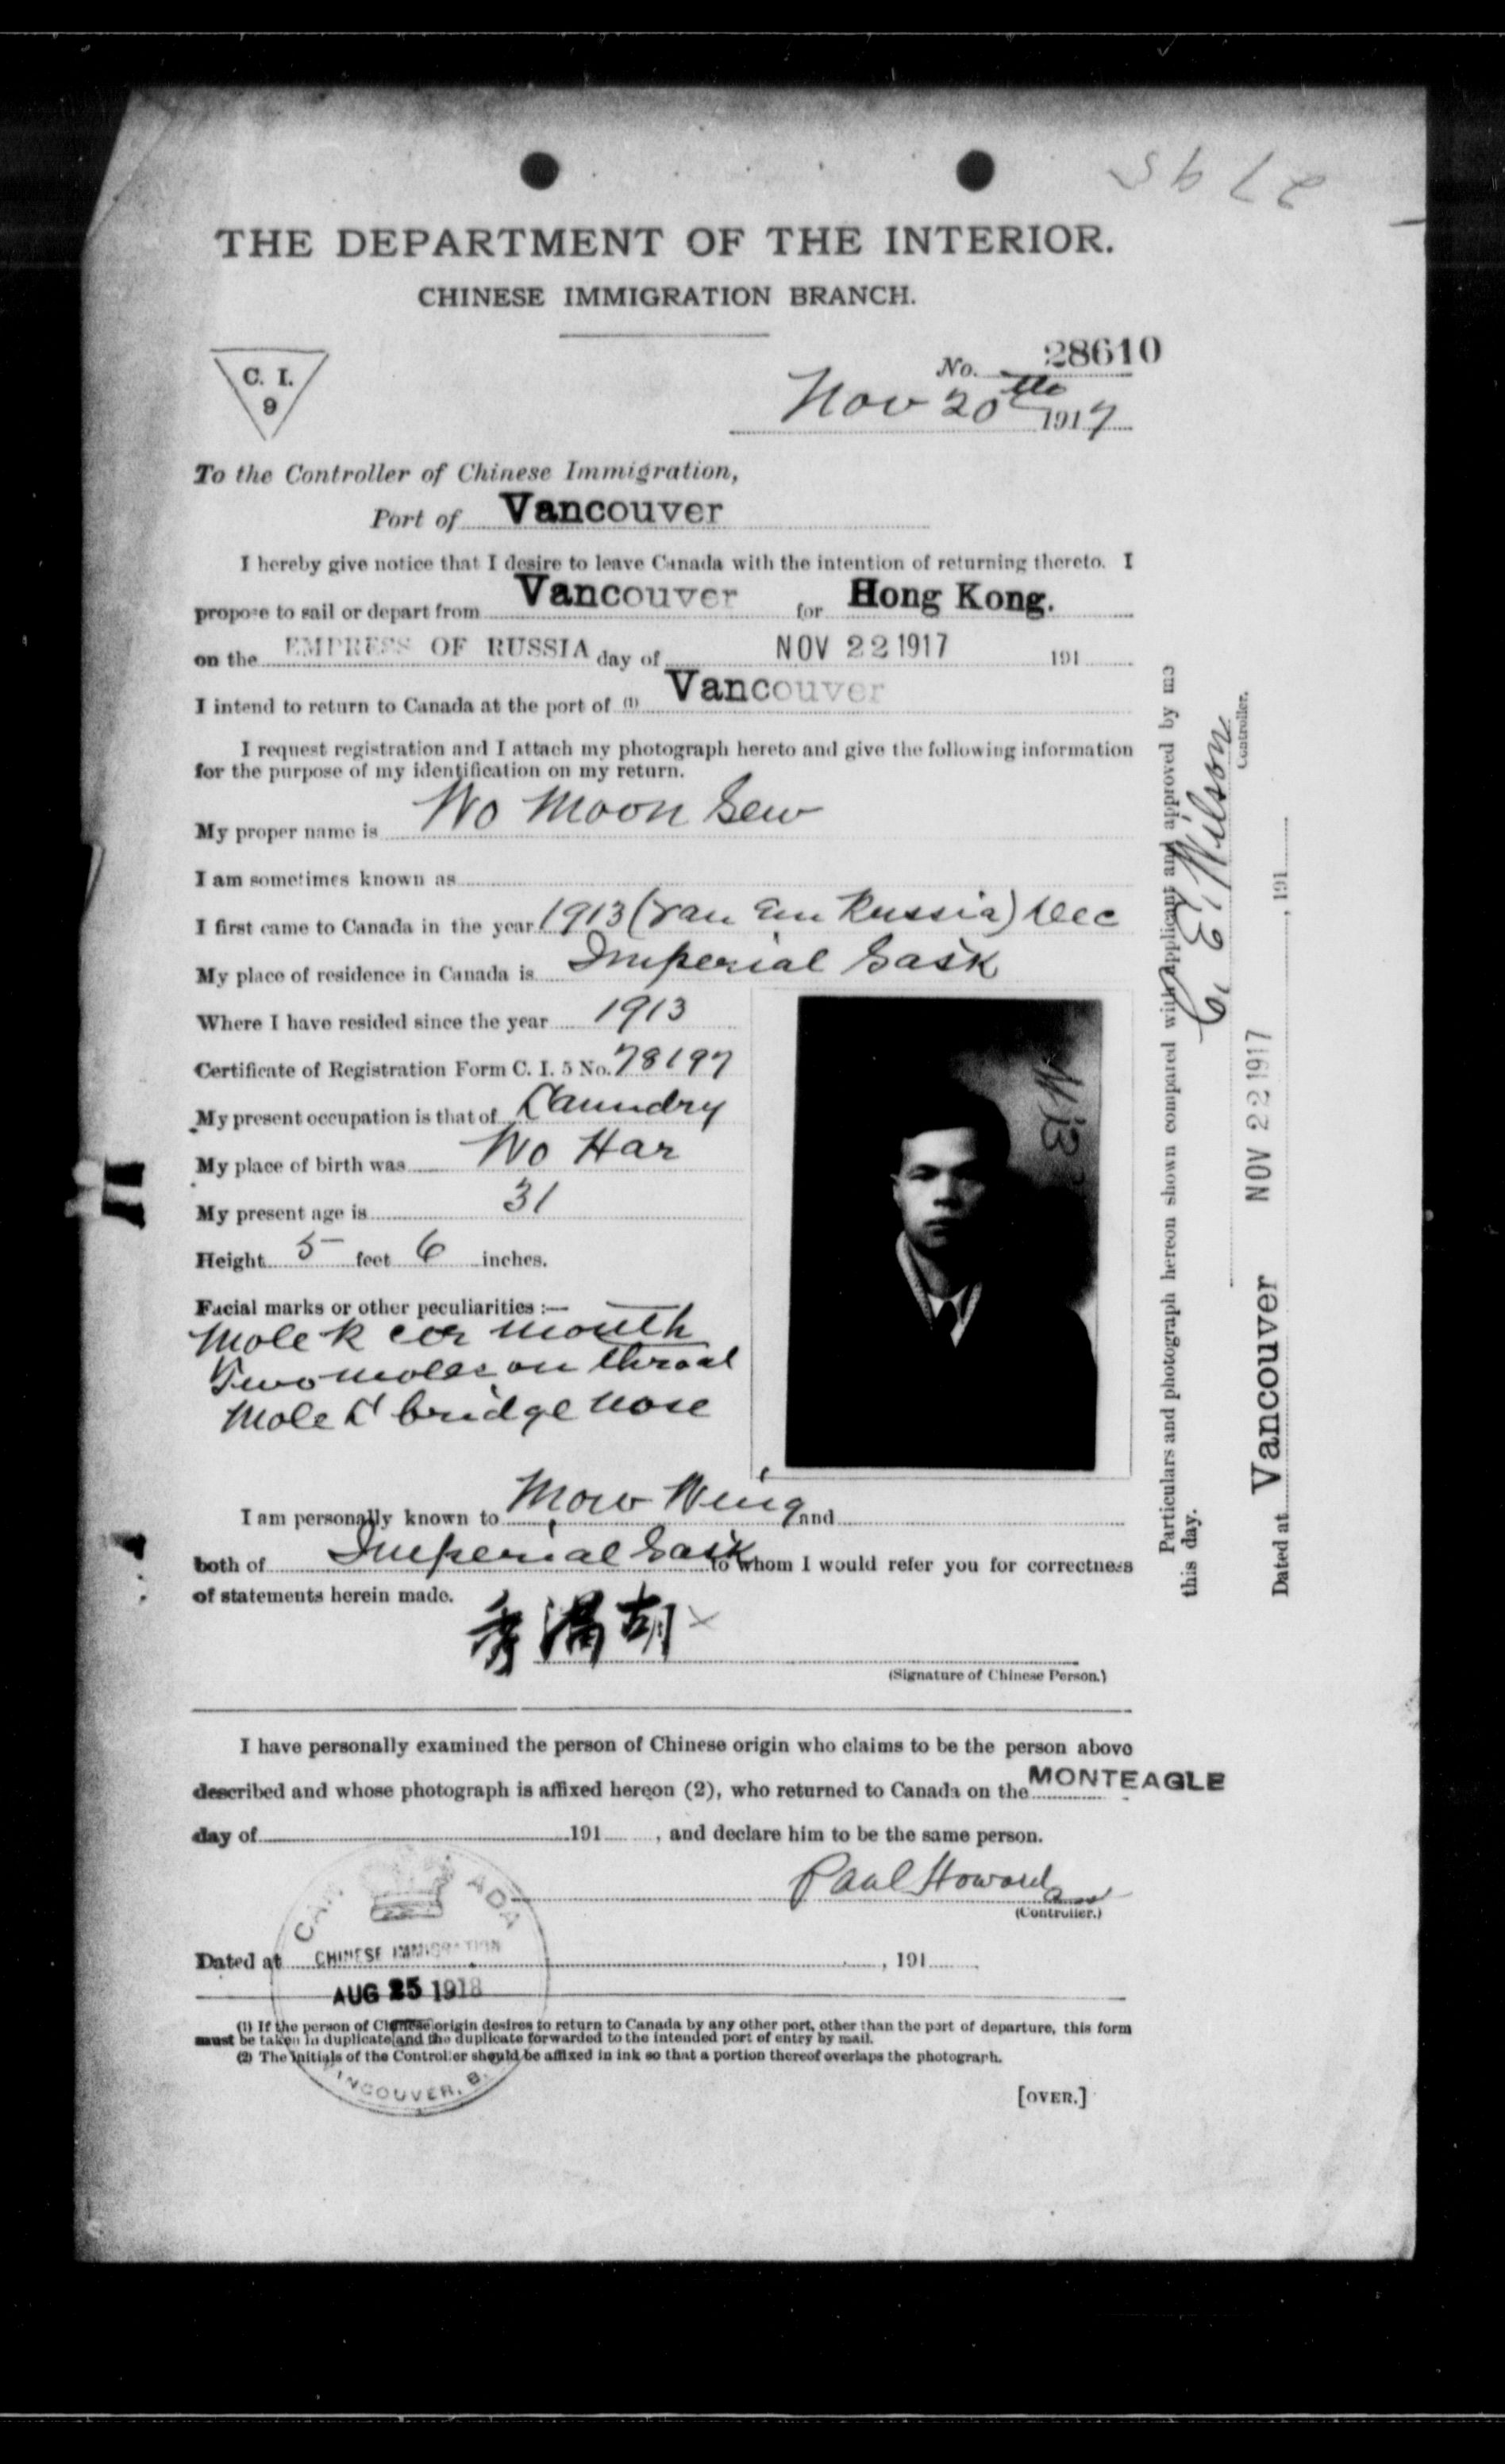 2795
THE DEPARTMENT OF THE INTERIOR.
CHINESE IMMIGRATION BRANCH.
C. I.
9
No. 28610
Nov 20th 1917
To the Controller of Chinese Immigration,
Port of Vancouver
I hereby give notice that I desire to leave Canada with the intention of returning thereto. I
propose to sail or depart from Vancouver for Hong Kong.
on the EMPRESS OF RUSSIA day of NOV 22 1917 191
I intend to return to Canada at the port of (1) Vancouver
I request registration and I attach my photograph hereto and give the following information
for the purpose of my identification on my return.
My proper name is Wo Moon Sew
I am sometimes known as
I first came to Canada in the year 1913 (Van Em Russia) Dec
My place of residence in Canada is Imperial Sask
Where I have resided since the year 1913
Certificate of Registration Form C. I. 5 No. 78197
My present occupation is that of Laundry
My place of birth was Wo Har
My present age is 31
Height 5 feet 6 inches.
Facial marks or other peculiarities :—
Mole R cor mouth
Two moles on throat
Mole L bridge nose
I am personally known to Mow Wing and
both of Imperial Sask to whom I would refer you for correctness
of statements herein made.
秀滿胡 x
(Signature of Chinese Person.)
I have personally examined the person of Chinese origin who claims to be the person above
described and whose photograph is affixed hereon (2), who returned to Canada on the MONTEAGLE
day of 191 , and declare him to be the same person.
Paul Howard
(Controller.)
Dated at , 191
CANADA
CHINESE IMMIGRATION
AUG 25 1918
VANCOUVER, B.
(1) If the person of Chinese origin desires to return to Canada by any other port, other than the port of departure, this form
must be taken in duplicate and the duplicate forwarded to the intended port of entry by mail.
(2) The initials of the Controller should be affixed in ink so that a portion thereof overlaps the photograph.
[OVER.]
Particulars and photograph hereon shown compared with applicant and approved by me
this day.
C. E. Wilson
Controller.
Dated at Vancouver NOV 22 1917 , 191